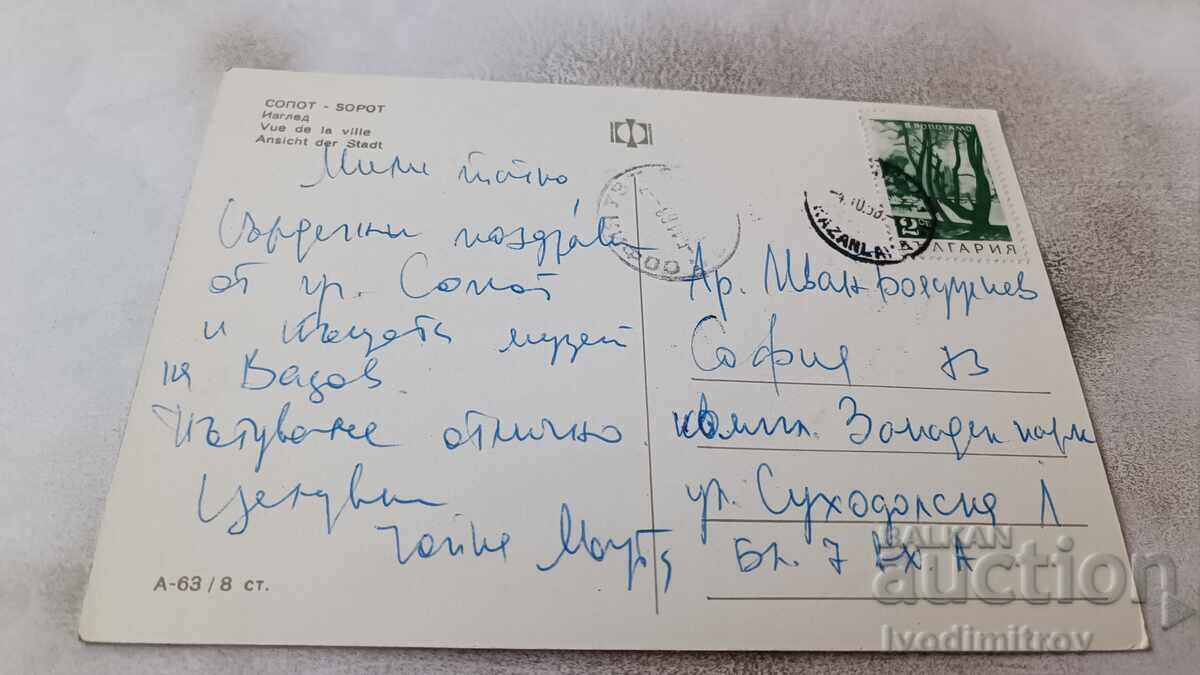 СОПОТ - SOPOT
Изглед
Vue de la ville
Ansicht der Stadt
Мили татко
Сърдечни поздрави
от гр. Сопот
и къщата музей
на Вазов
Пътуваме отлично
Целувки
А-63/8 ст.
РОПОТАМО
2
БЪЛГАРИЯ
KAZANLAK
СОФИЯ
Др. Иван
София 73
компл. Западен парк
ул. Суходолска 1
Бл. 7 Вх. А
BALKAN
auction
Ivodimitrov